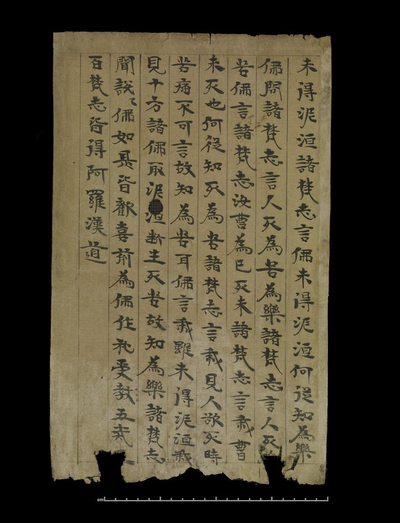 未得泥洹諸梵志言佛未得泥洹何從知為樂
佛問諸梵志言人死為苦為樂諸梵志言人死
苦佛言諸梵志汝曹為已死未諸梵志言我曹
未死也何從知死為苦諸梵志言我見人欲死時
苦痛不可言故知為苦耳佛言我雖未得泥洹我
見十方諸佛取泥洹斷生死苦故知為樂諸梵志
聞說佛如是皆歡喜前為佛作礼受教五戒
百梵志皆得阿羅漢道